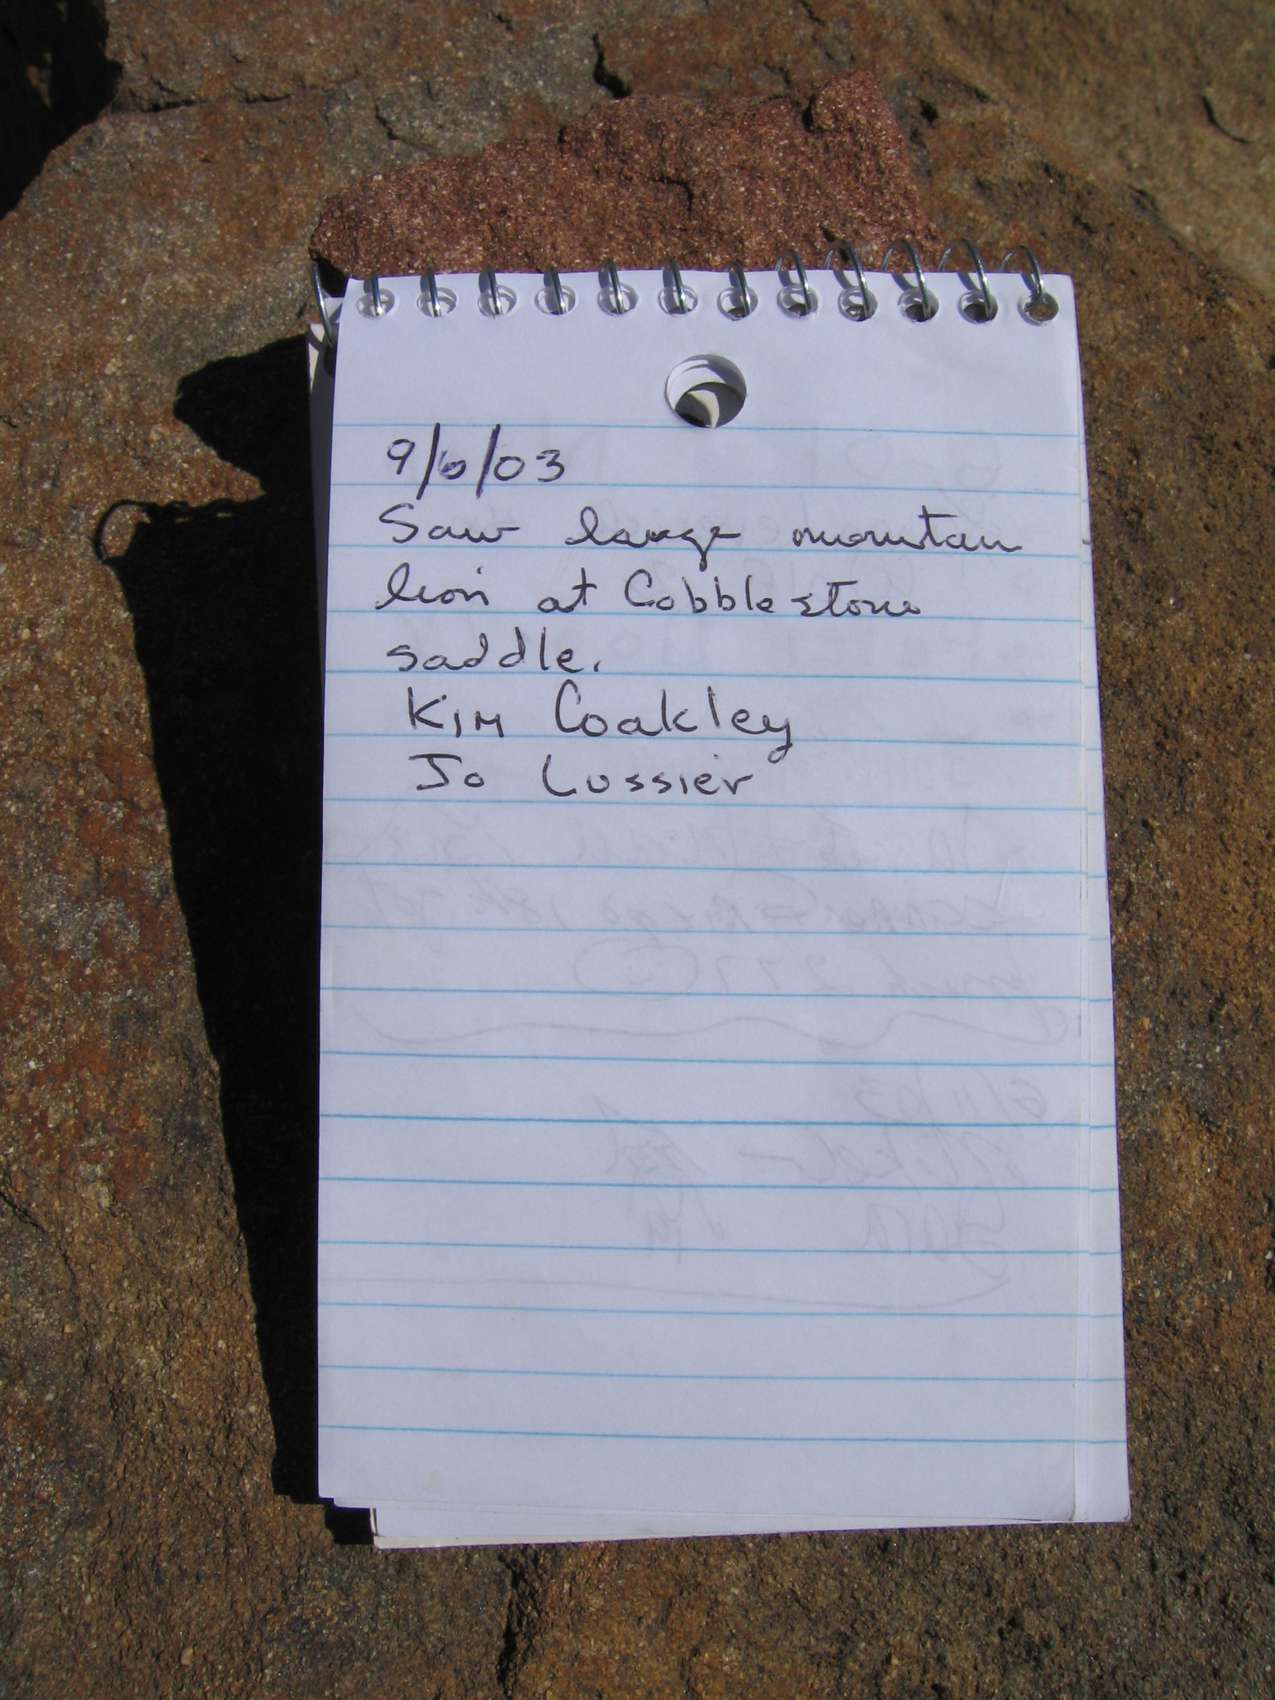 9/6/03
Saw large mountain
lion at Cobblestone
saddle.
Kim Coakley
Jo Lussier